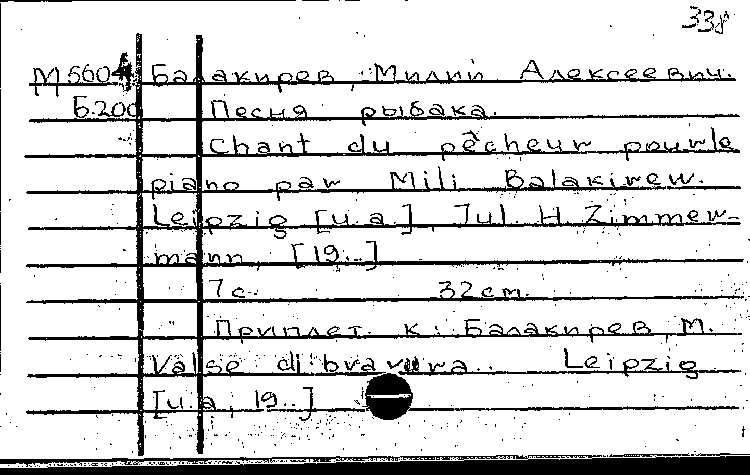 338
М5604 Балакирев, Милий Алексеевич.
Б.200 Песня рыбака.
Chant du pêcheur pour le
piano par Mili Balakirew.
Leipzig [u.a.], Jul. H. Zimmer-
mann, [19..]
7 с. 32 см.
Приплет. к: Балакирев, М.
Valse di bravura.. Leipzig
[u.a, 19..]